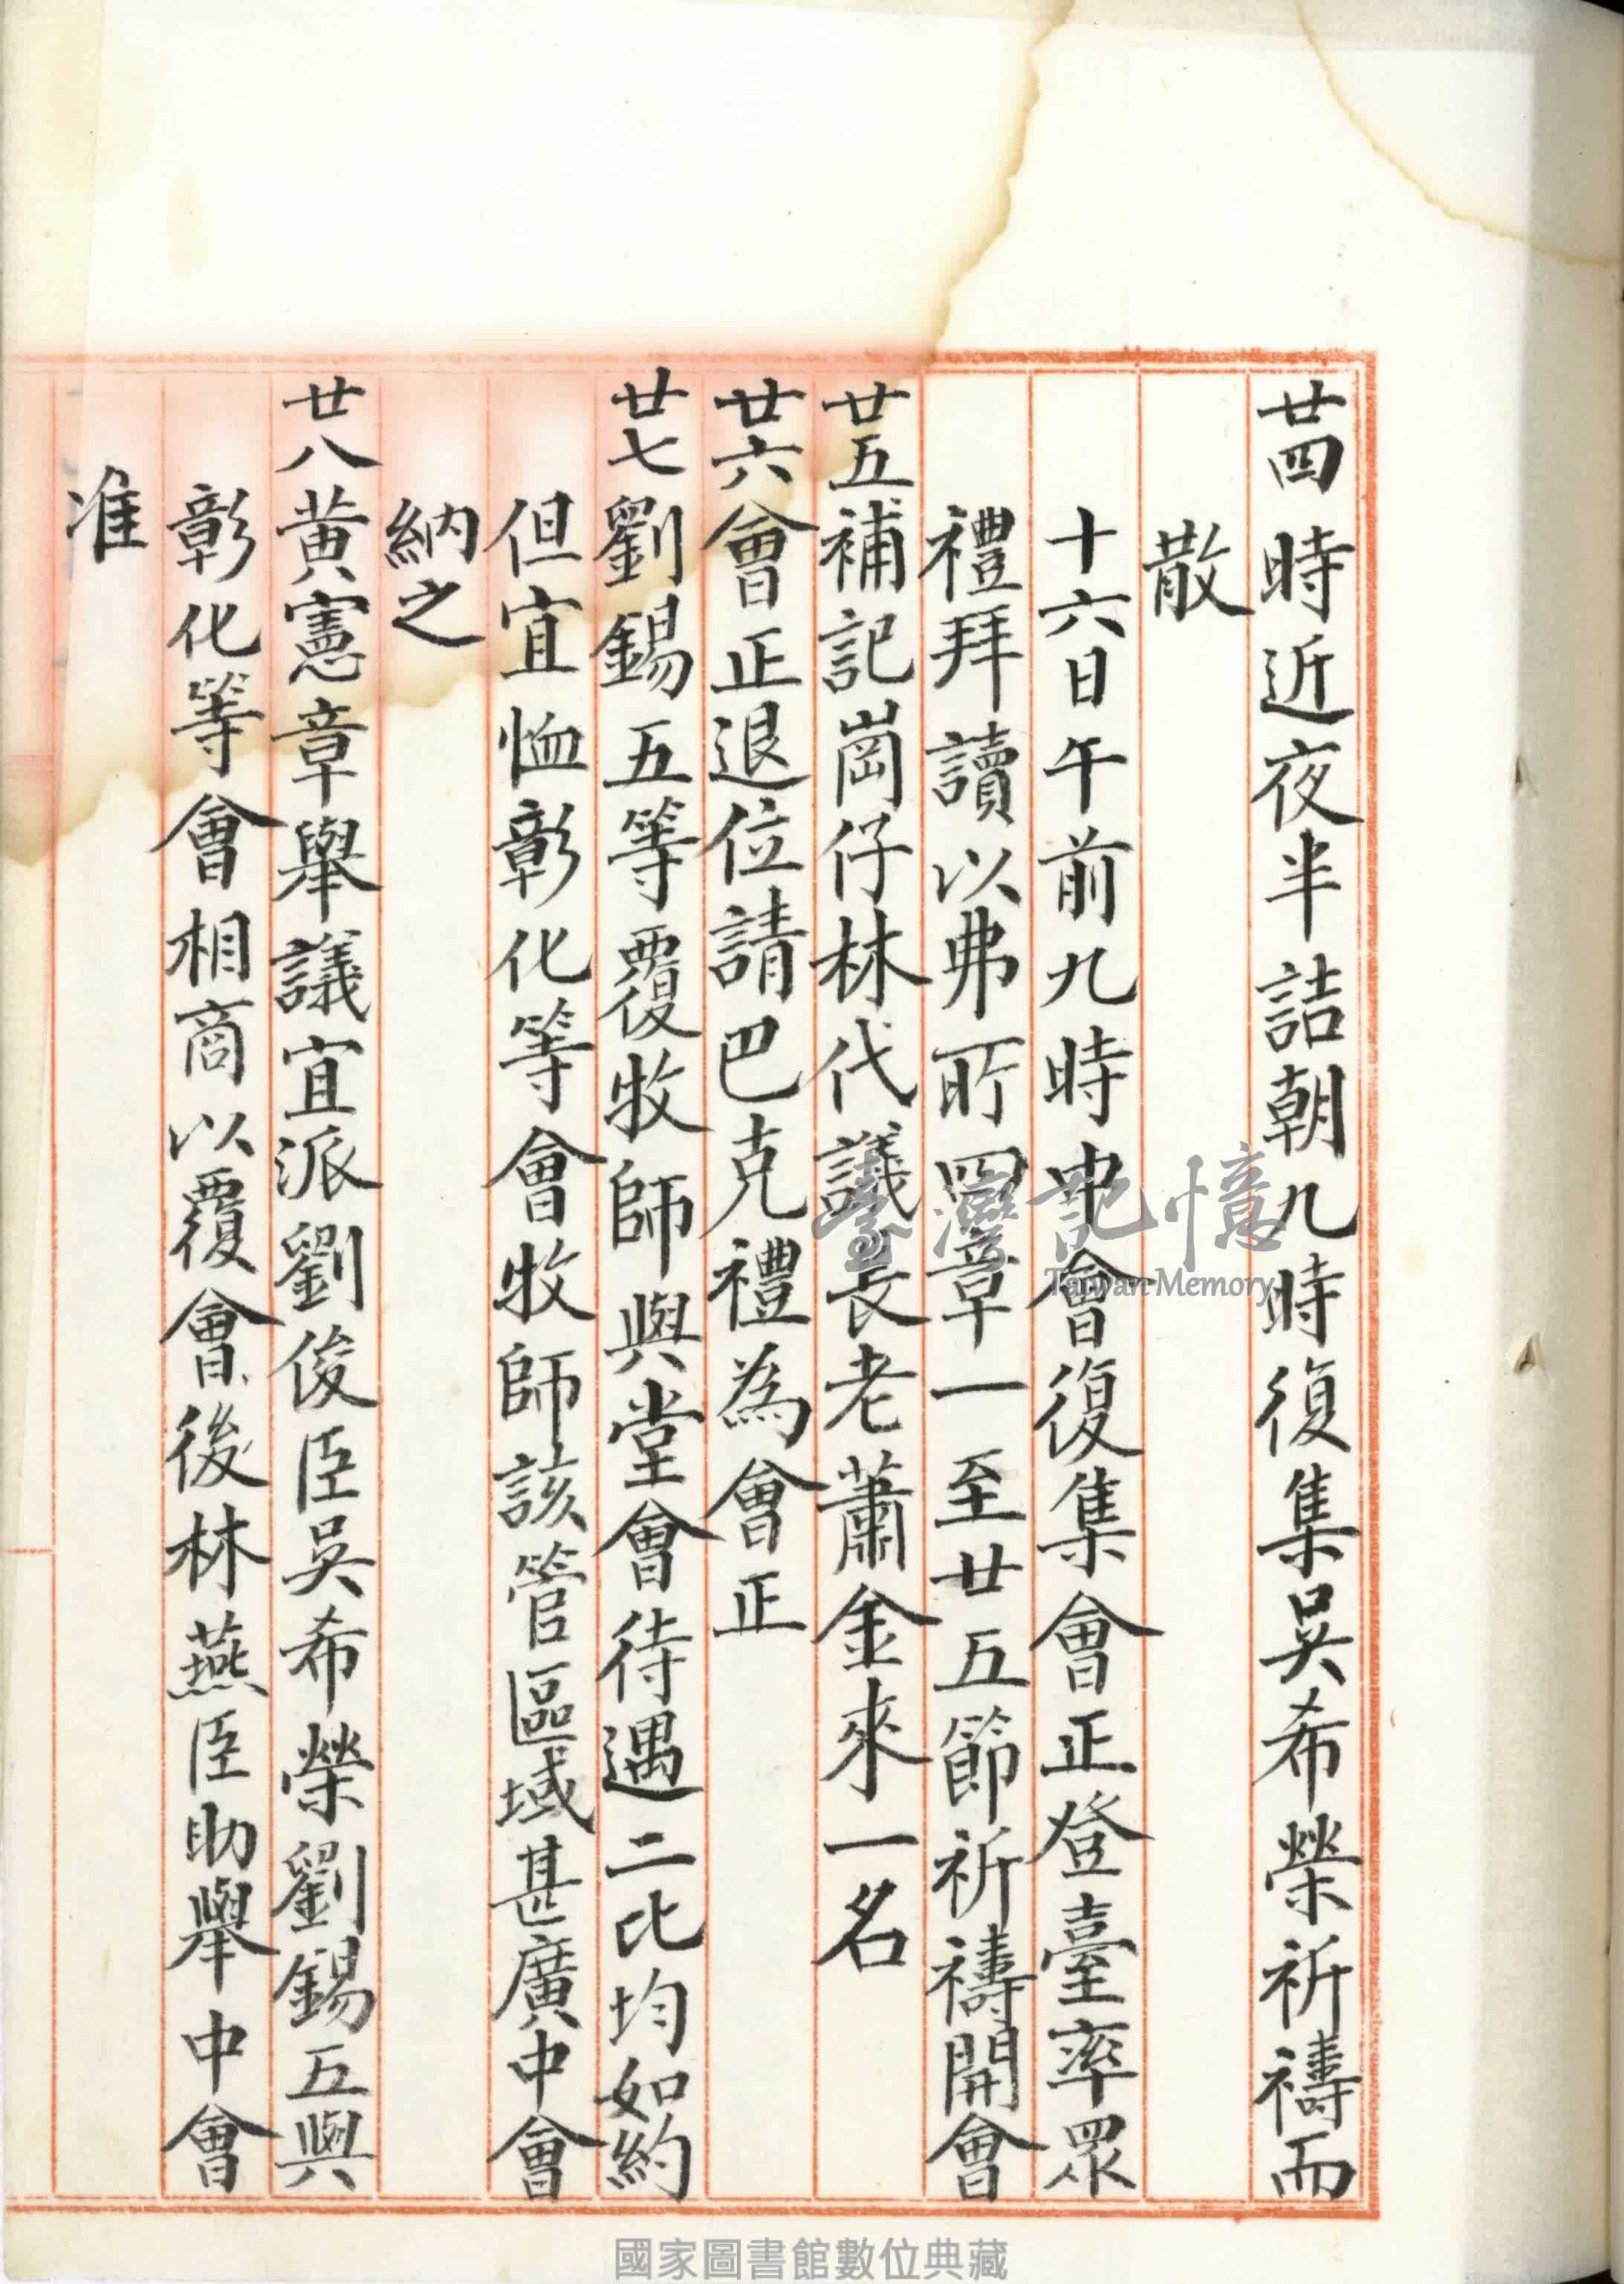 廿四時近夜半詰朝九時復集吳希榮祈禱而
散
十六日午前九時中會復集會正登臺率眾
禮拜讀以弗所四章一至廿五節祈禱開會
廿五補記崗仔林代議長老蕭金來一名
廿六會正退位請巴克禮為會正
廿七劉錫五等覆牧師與堂會待遇二比均如約
但宜恤彰化等會牧師該管區域甚廣中會
納之
廿八黃憲章舉議宜派劉俊臣吳希榮劉錫五與
彰化等會相商以覆會後林燕臣助舉中會
准
臺灣記憶
Taiwan Memory
國家圖書館數位典藏